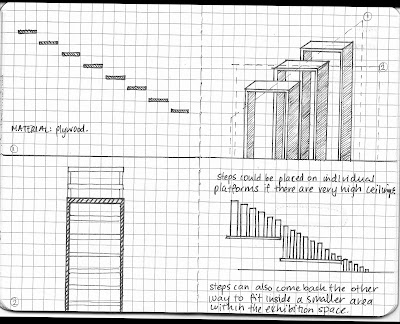 MATERIAL: plywood.
1
1
2
steps could be placed on individual
platforms if there are very high ceilings
2
steps can also come back the other
way to fit inside a smaller area
within the exhibition space.